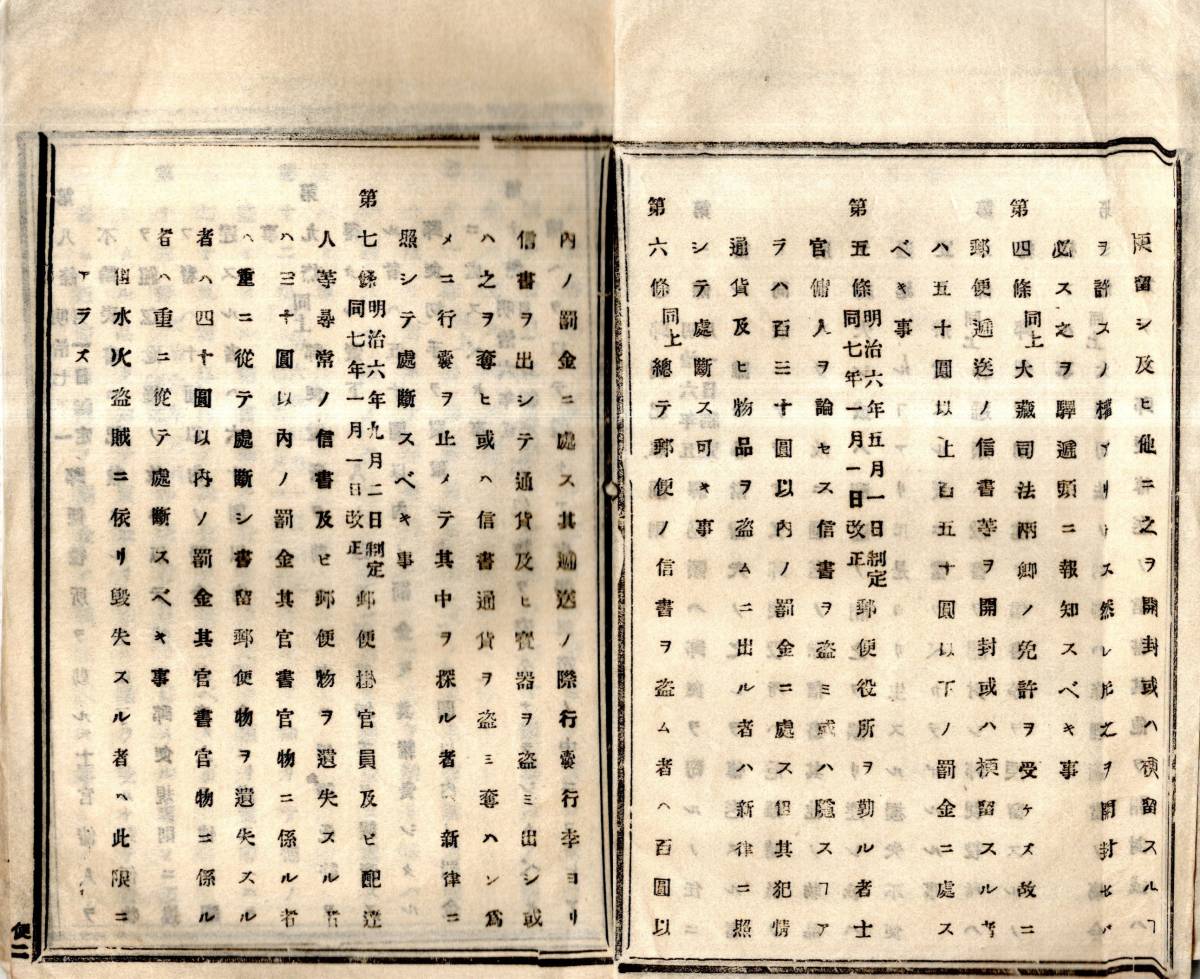 便留シ及ヒ他ニ之ヲ開封或ハ横留スルヿ
ヲ許スノ權アリトス然レ𪜈之ヲ開封セハ
必ス之ヲ驛遞頭ニ報知スベキ事
第四條同上大藏司法兩卿ノ免許ヲ受ケス故ニ
郵便遞送ノ信書等ヲ開封或ハ横留スル者
ハ五十圓以上百五十圓以下ノ罰金ニ處ス
ベキ事
第五條明治六年五月一日制定同七年一月一日改正郵便役所ヲ勤ルル者士
官傭人ヲ論セス信書ヲ盗ミ或ハ隱スヿア
ラハ百三十圓以內ノ罰金ニ處ス但其犯情
通貨及ヒ物品ヲ盗ムニ出ル者ハ新律ニ照
シテ處斷ス可キ事
第六條同上總テ郵便ノ信書ヲ盗ム者ハ百圓以
內ノ罰金ニ處ス其遞送ノ際行囊行李ヨリ
信書ヲ出シテ通貨及ヒ寶器ヲ盗ミ出シ或
ハ之ヲ奪ヒ或ハ信書通貨ヲ盗ミ奪ハン爲
メニ行囊ヲ止メテ其中ヲ探ル者新律ニ
照シテ處斷スベキ事
第七條明治六年九月二日制定同七年一月一日改正郵便掛官員及ヒ配達
人等尋常ノ信書及ヒ郵便物ヲ遺失スル者
ハ三十圓以內ノ罰金其官書官物ニ係ル者
ハ重ニ從テ處斷シ書留郵便物ヲ遺失スル
者ハ四十圓以內ノ罰金其官書官物ニ係ル
者ハ重ニ從テ處斷スベキ事
但水火盗賊ニ依リ毀失スル者ハ此限ニ
アラズ
便二